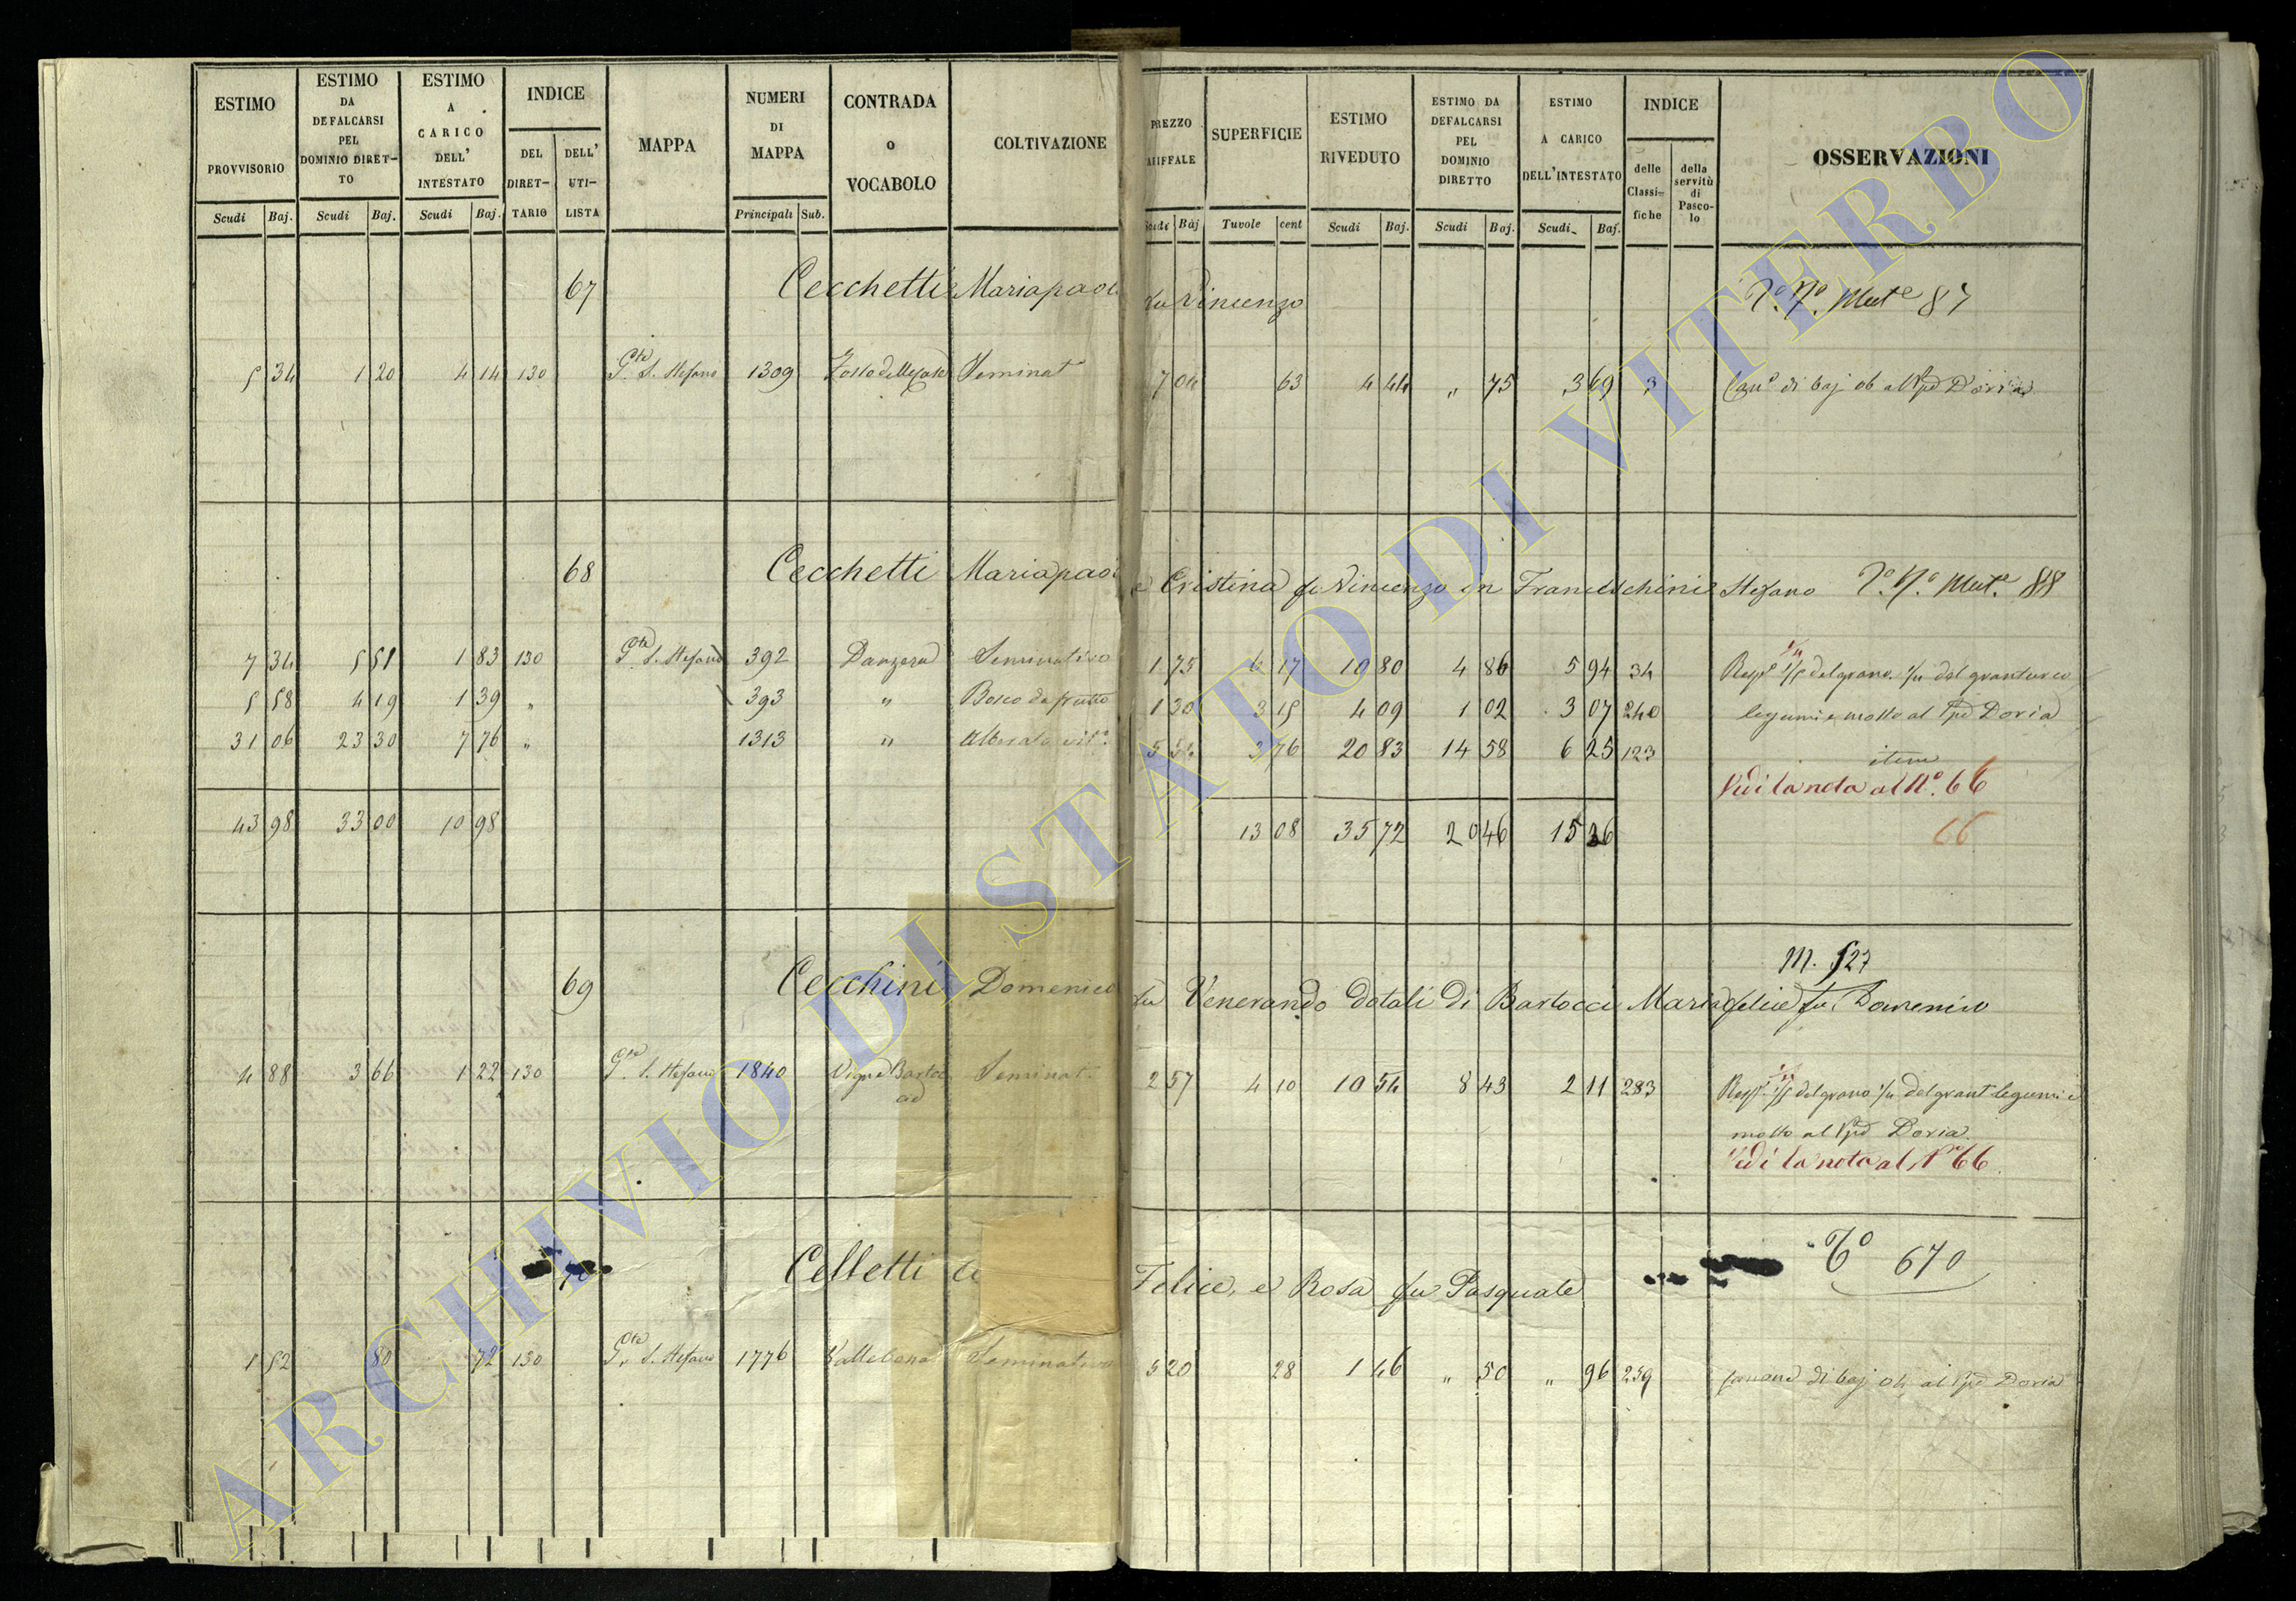 ESTIMO PROVVISORIO Scudi Baj.
ESTIMO DA DEFALCARSI PEL DOMINIO DIRET-TO Scudi Baj.
ESTIMO A CARICO DELL' INTESTATO Scudi Baj.
INDICE DEL DIRET-TARIO DELL' UTI-LISTA
MAPPA
NUMERI DI MAPPA Principali Sub.
CONTRADA o VOCABOLO
COLTIVAZIONE
PREZZO Scudi Baj
SUPERFICIE Tavole cent
ESTIMO RIVEDUTO Scudi Baj.
ESTIMO DA DEFALCARSI PEL DOMINIO DIRETTO Scudi Baj.
ESTIMO A CARICO DELL'INTESTATO Scudi Baj.
INDICE delle Classi-fiche della servitù di Pasco-lo
OSSERVAZIONI
67 Cecchetti Mariapaola fu Vincenzo 87
5 34 1 20 4 14 130 S. Stefano 1309 Seminat 7 04 63 4 44 „ 75 3 69 3 di baj 06 al Doria
68 Cecchetti Mariapaola e Cristina fu Vincenzo in Franceschini Stefano 88
7 34 5 51 1 83 130 S. Stefano 392 Danzera Seminativo 1 75 6 17 10 80 4 86 5 94 34 1/5 del grano 1/4 del granturco
5 58 4 19 1 39 „ 393 „ Bosco da frutto 1 30 3 15 4 09 1 02 3 07 240 legumi e mosto al Doria
31 06 23 30 7 76 „ 1313 „ Alberato vit. 5 54 3 76 20 83 14 58 6 25 123 item
Vedi la nota al N.º 66
43 98 33 00 10 98 13 08 35 72 20 46 15 26 66
M. 527
69 Cecchini Domenico fu Venerando dotali di Bartocci Maria felice fu Domenico
4 88 3 66 1 22 130 S. Stefano 1840 Seminat 2 57 4 10 10 54 8 43 2 11 283 1/5 del grano 1/4 del grant legumi e
mosto al Doria
Vedi la nota al N.º 66
670
70 Celletti Felice, e Rosa fu Pasquale
1 52 80 72 130 S. Stefano 1776 Vallebona Seminativo 5 20 28 1 46 „ 50 „ 96 259 Canone di baj 04 al Doria
ARCHIVIO DI STATO DI VITERBO